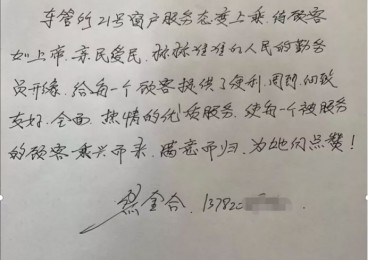 车管所21号窗户服务态度上乘,待顾客
如上帝,亲民爱民,林林佳佳的人民的勤务
员形像,给每一个顾客提供了便利,周到,
友好,全面,热情的优质服务,使每一个被服务
的顾客乘兴而来,满意而归,为她们点赞!
金合,1378